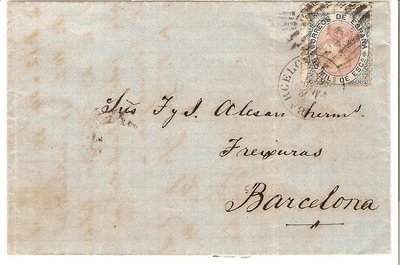 CORREOS DE ESPAÑA
MILS DE ESCO
Sres F y J. Alesan herms.
Freixuras
Barcelona